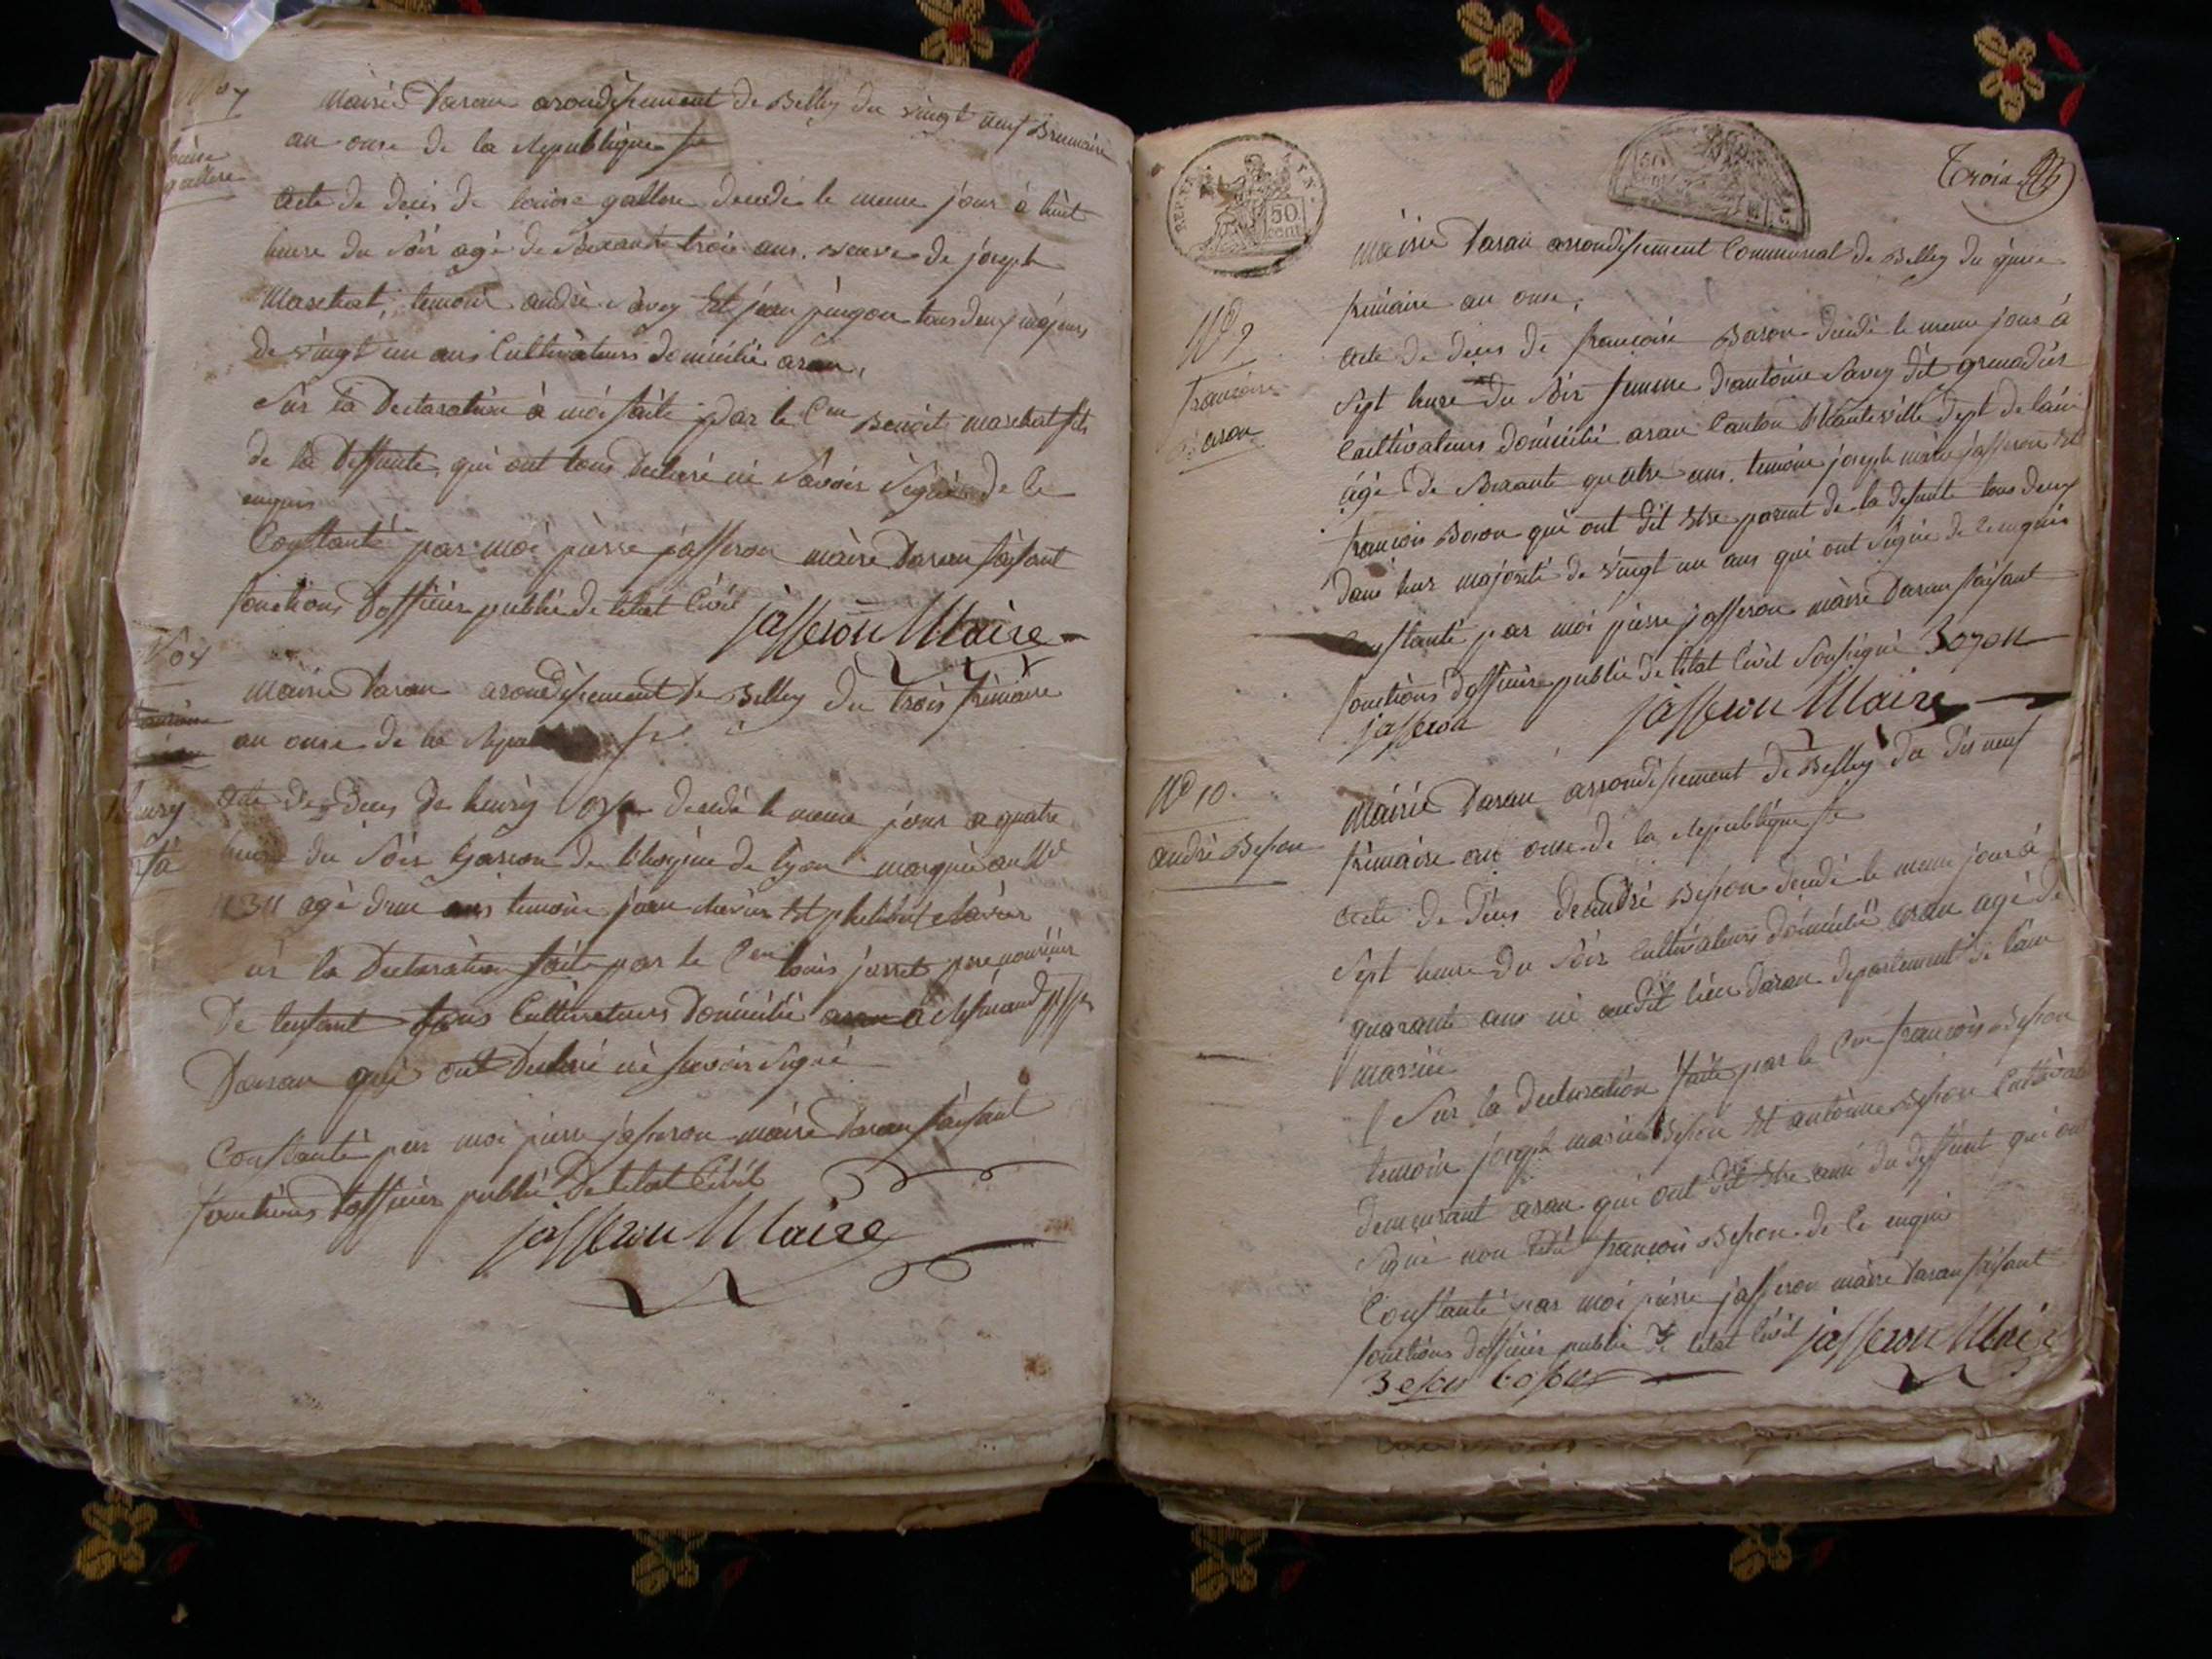 No 7
Louise
gallese
Mairie Daran arondissement de Belley du vingt neuf Brumaire
an onse de la Republique fr
Acte de deces de louise gallese decedé le meme jour à huit
heure du soir agé de Soixante trois ans, veuve de joseph
Marchat, temoin andré Savey Et jean pingon tous deux majeurs
de vingt un ans Cultivateurs domicilié aran,
Sur la Declaration à moi faite par le Cen Benoit marchat fils
de la deffunte, qui ont tous declaré ni Savoir Signé de ce
enquis
Constanté par moi pierre jasseron maire Daran faisant
fonctions Dofficier public de letat Civil
jasseron Maire
Mairie Daran arondissement de Belley du trois frimaire
an onse de la Repu
henry
Acte de deces de henry decedé le meme jour a quatre
heure du Soir garson de lhospice de lyon marqué au No
agé dun ans temoin jean chevier Et philibert chevier
la Declaration faite par le Cen louis jarret pere nouricier
De lenfant tous Cultivateurs Domicilié
Daran qui ont Declaré ni savoir Signé
Constanté par moi pierre jasseron maire Daran faisant
fonctions Dofficier public De letat Civil
jasseron Maire
REP. FRA.
50
cent
Trois
No 9
francoise
Boson
Mairie Daran arrondissement Communal de Belley du quinse
frimaire an onse,
Acte de deces de francoise Boson decedé le meme jour à
Sept heure du Soir femme dantoine Savey dit grenadier
Cultivateurs domicilié aran Canton dhauteville dept de lain
agé de Soixante quatre ans. temoin joseph marie jasseron Et
francois Boson qui ont dit Etre parent de la defunte tous deux
dans leur majorité de vingt un ans qui ont Signé de ce enquis
Constanté par moi pierre jasseron maire Daran faisant
fonctions dofficier public de letat Civil Soussigné Bozon
jasseron jasseron Maire
No 10
andré Besson
Mairie Daran arrondissement de Belley du dis neuf
frimaire an onse de la Republique fr
Acte de deces deandré Besson decedé le meme jour à
Sept heure du Soir Cultivateurs domicilié aran agé de
quarante ans né audit lieu Daran departement de lain
marrié
Sur la declaration faite par le Cen francois Besson
temoin joseph marie Besson Et antoinne Besson Cultivat
demeurant aran qui ont dit Etre ami du deffunt qui ont
Signé non ledit francois Besson de ce enquis
Constanté par moi pierre jasseron maire Daran faisant
fonctions dofficier public de letat Civil jasseron Maire
Beson